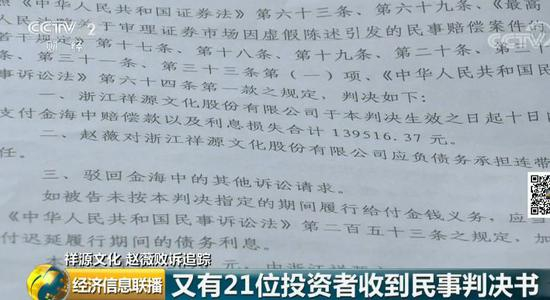 照《中华人民共和国证券法》第六十三条、第六十九条、《最高
关于审理证券市场因虚假陈述引发的民事赔偿案件
若干规定》第十七条、第十八条、第十九条、第二十条、第
条、第三十一条、第三十三条第（一）项、《中华人民共和国民
事诉讼法》第六十四条第一款之规定，判决如下：
一、浙江祥源文化股份有限公司于本判决生效之日起十日
支付金海中赔偿款以及利息损失合计 139516.37 元。
二、赵薇对浙江祥源文化股份有限公司应负债务承担连带
任。
三、驳回金海中的其他诉讼请求。
如被告未按本判决指定的期间履行给付金钱义务，应当
《中华人民共和国民事诉讼法》第二百五十三条之规定，加
付迟延履行期间的债务利息。
CCTV 2
财经
CCTV
祥源文化 赵薇败诉追踪
经济信息联播
又有21位投资者收到民事判决书